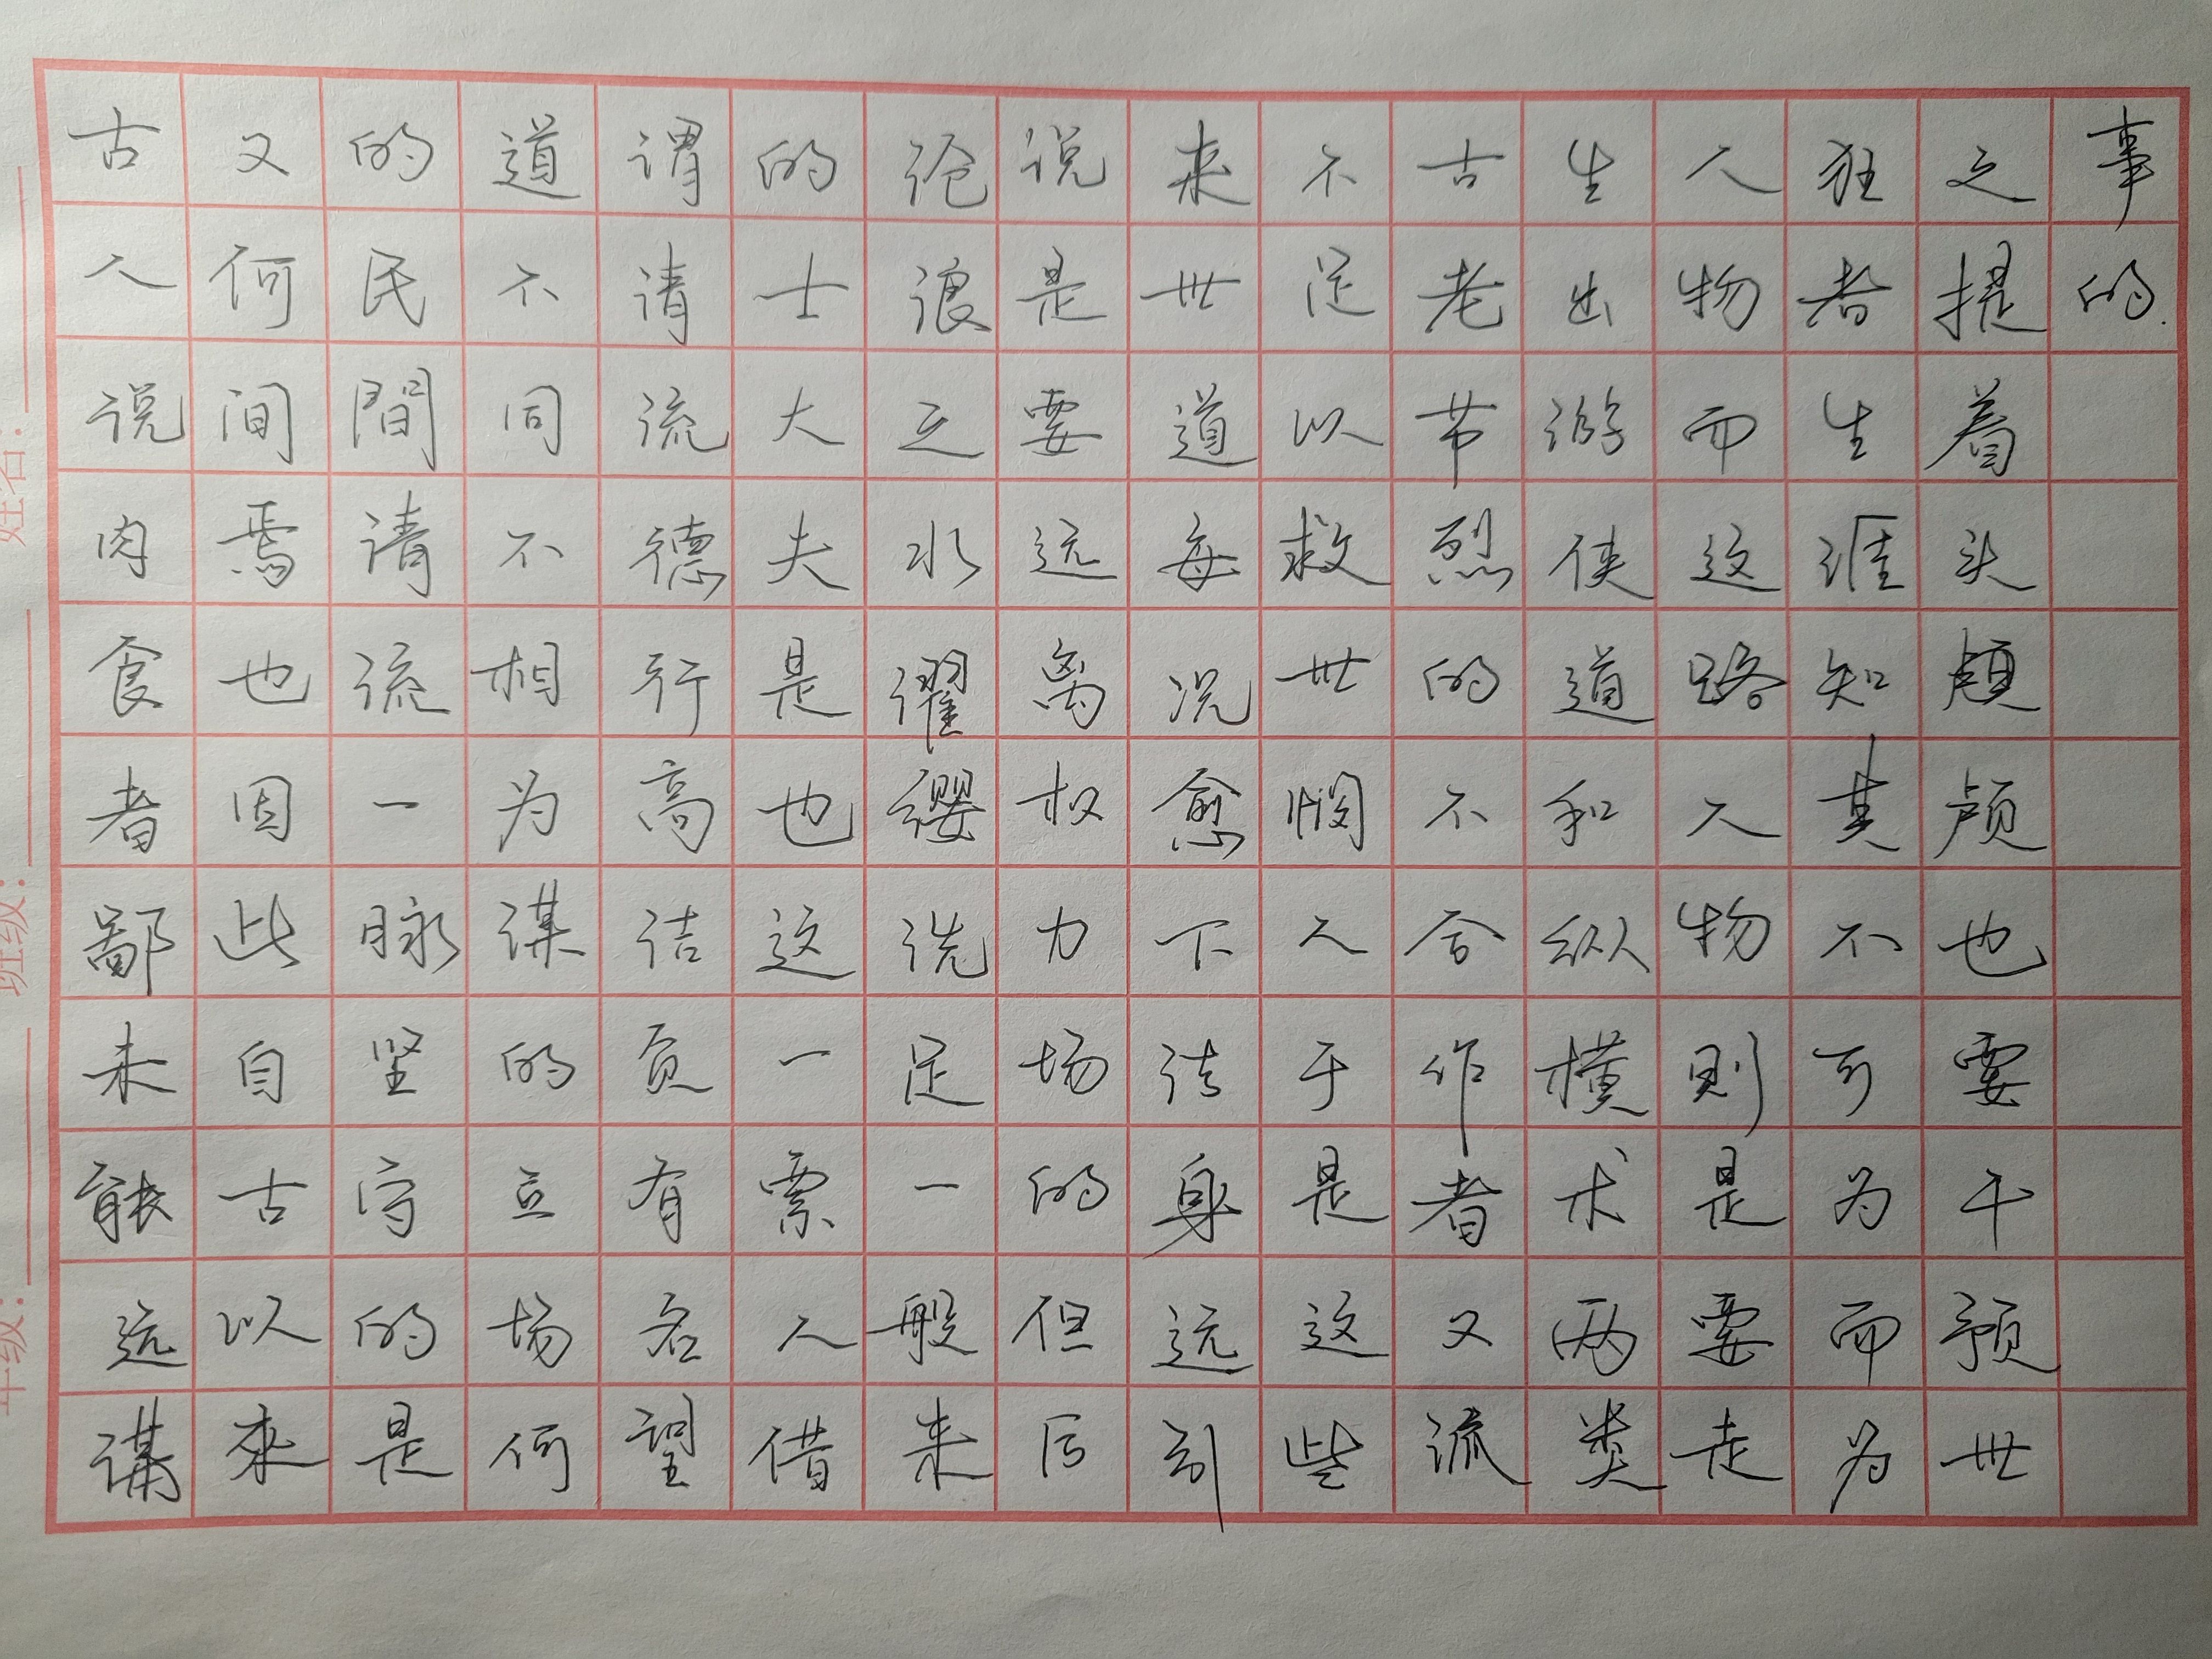 年级： 班级： 姓名：
古人说肉食者鄙未能远谋
又何间焉也因此自古以來
的民間清流一脉坚守的是
道不同不相为谋的立场何
谓清流德行高洁负有名望
的士大夫是也这一票人借
沧浪之水濯缨洗足一般来
说是要远离权力场的但后
来世道每况愈下洁身远引
不足以救世悯人于是这些
古老节烈的不合作者又流
生出游侠道和纵横术两类
人物而这路人物則是要走
狂者生涯知其不可为而为
之提着头颅也要干预世
事的.